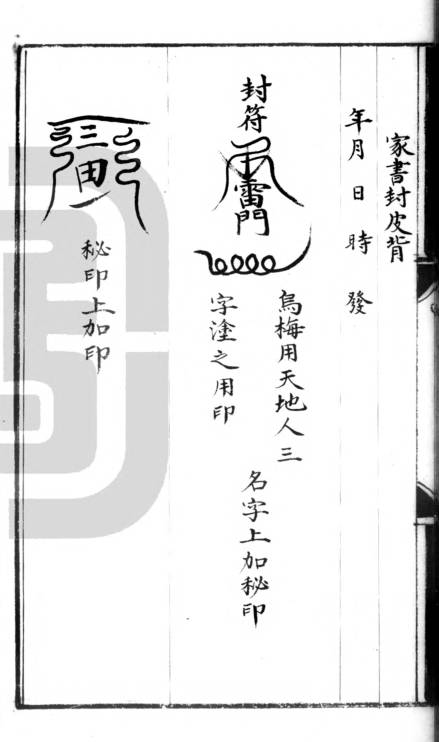 家書封皮背
年月日時發
封符
雷門
烏梅用天地人三
字塗之用印
名字上加秘印
三田
秘印上加印